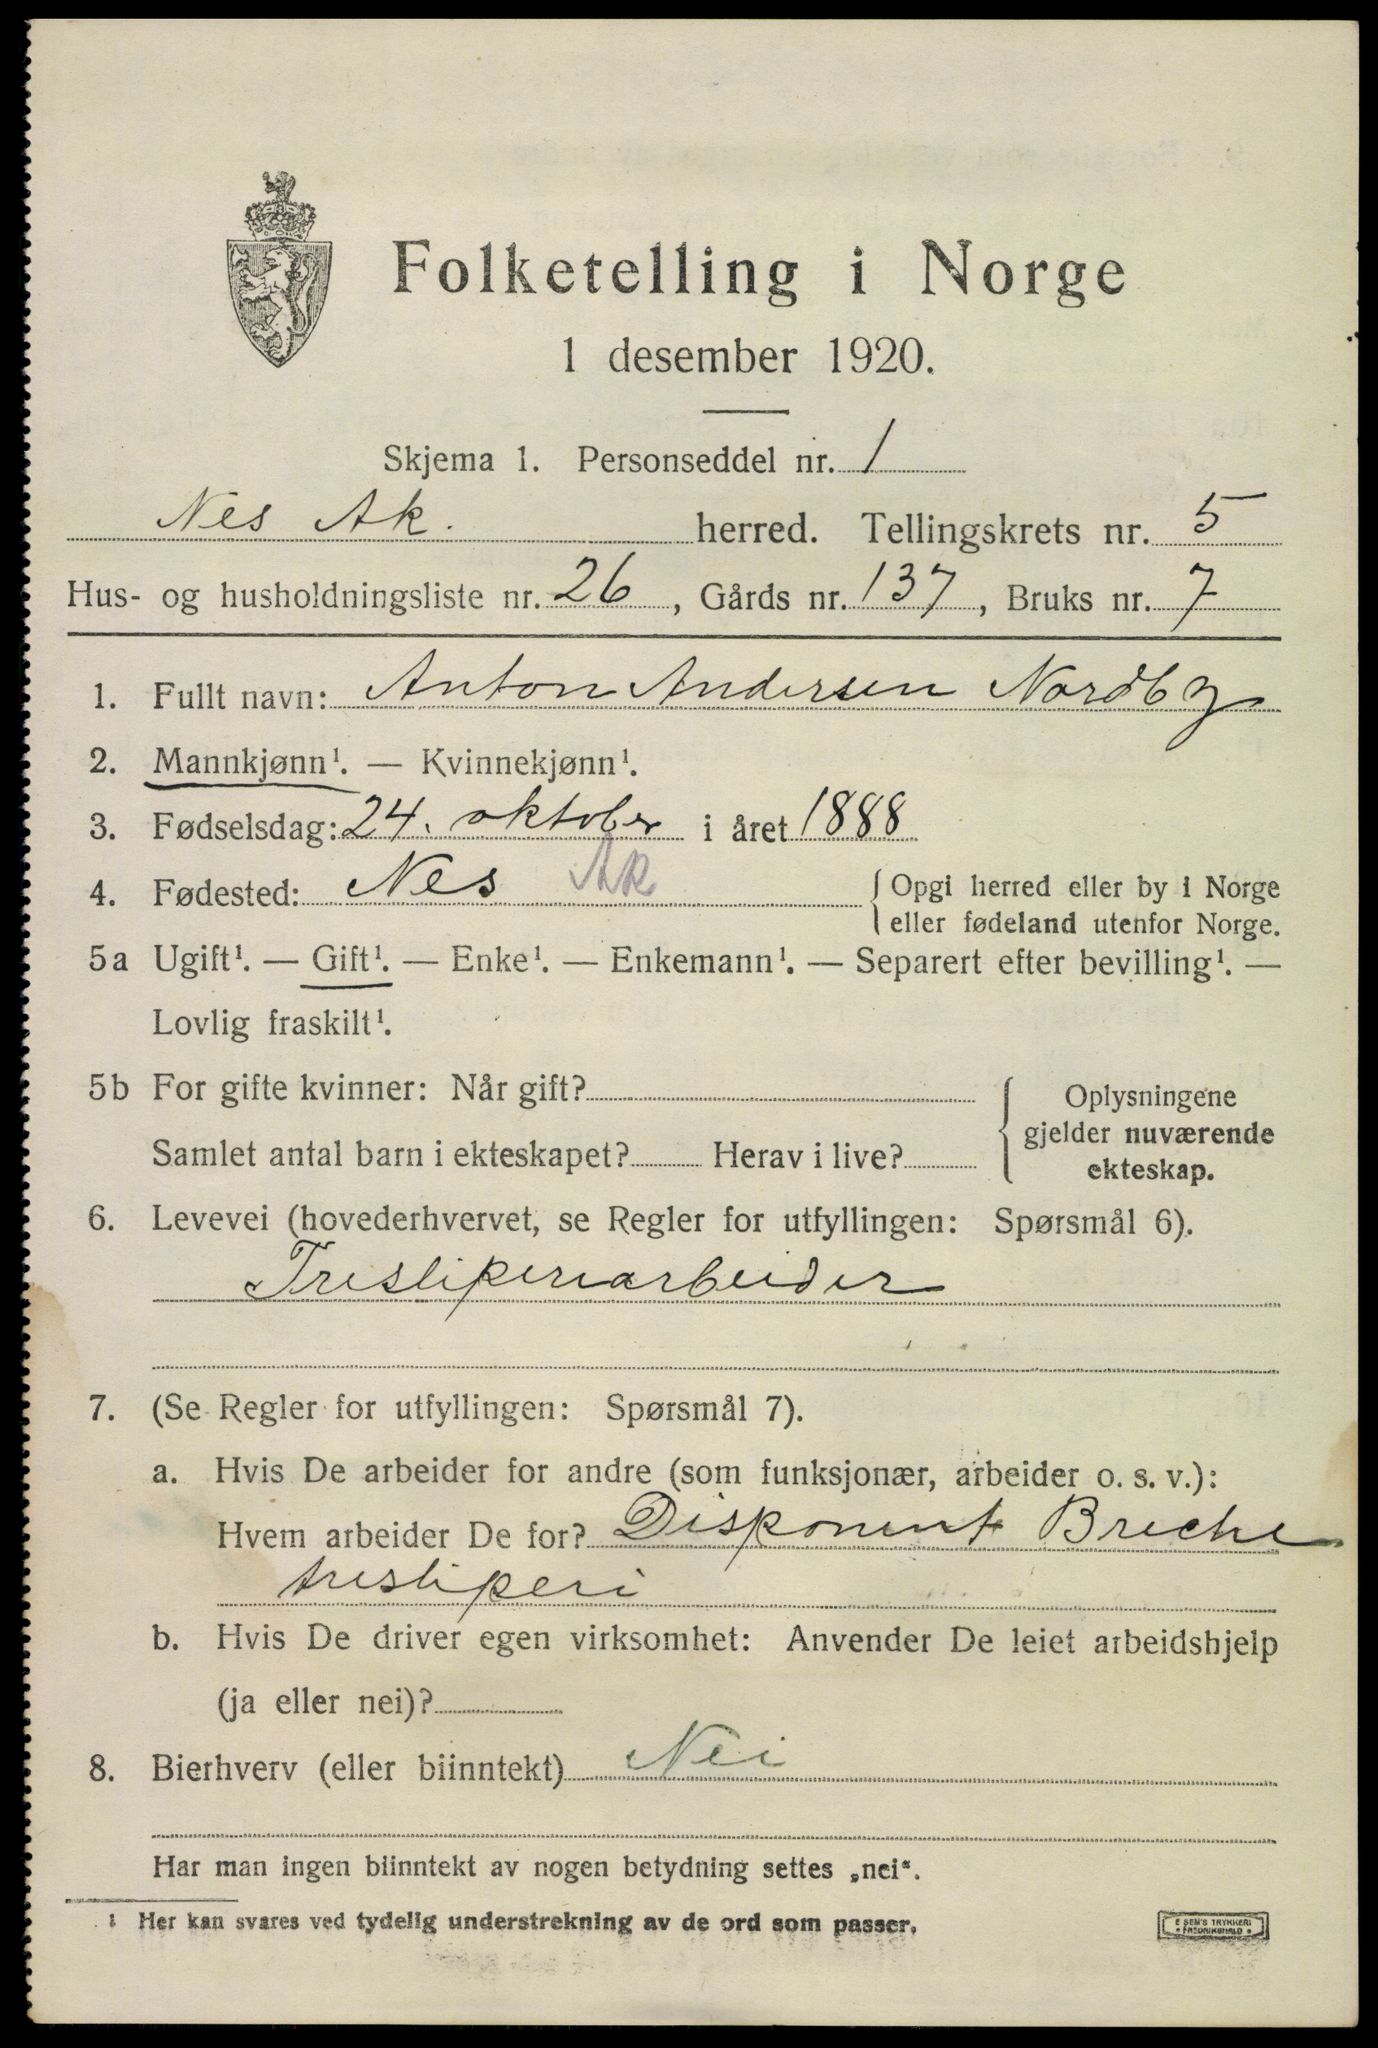 Folketelling i Norge
1 desember 1920.
Skjema 1. Personseddel nr. 1
Nes Ak. herred. Tellingskrets nr. 5
Hus- og husholdningsliste nr. 26, Gårds nr. 137, Bruks nr. 7
1. Fullt navn: Anton Andersen Nordby
2. Mannkjønn¹. — Kvinnekjønn¹.
3. Fødselsdag: 24. oktober i året 1888
4. Fødested: Nes Ak {Opgi herred eller by i Norge
eller fødeland utenfor Norge.
5a Ugift¹. — Gift¹. — Enke¹. — Enkemann¹. — Separert efter bevilling¹. —
Lovlig fraskilt¹.
5b For gifte kvinner: Når gift? { Oplysningene
gjelder nuværende
Samlet antal barn i ekteskapet? Herav i live?
ekteskap.
6. Levevei (hovederhvervet, se Regler for utfyllingen: Spørsmål 6).
Tresliperiarbeider
7. (Se Regler for utfyllingen: Spørsmål 7).
a. Hvis De arbeider for andre (som funksjonær, arbeider o. s. v.):
Hvem arbeider De for? Disponent Breche
tresliperi
b. Hvis De driver egen virksomhet: Anvender De leiet arbeidshjelp
(ja eller nei)?
8. Bierhverv (eller biinntekt) Nei
Har man ingen biinntekt av nogen betydning settes „nei“.
1 Her kan svares ved tydelig understrekning av de ord som passer.
E SEM'S TRYKKERI
• FREDRIKSHALD •